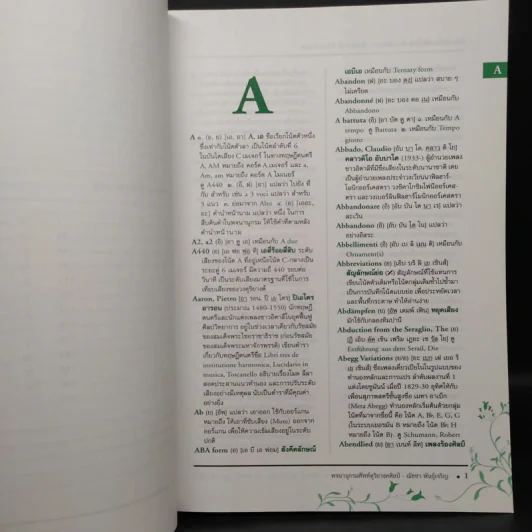 A
A ๑. (อ, ย) [เอ, อา] A, เอ ชื่อเรียกโน้ตตัวหนึ่ง
ซึ่งเท่ากับโน้ตตัวลา เป็นโน้ตลำดับที่ 6
ในบันไดเสียง C เมเจอร์ ในทางทฤษฎีดนตรี
A, AM หมายถึง คอร์ด A เมเจอร์ และ a,
Am, am หมายถึง คอร์ด A ไมเนอร์
ดู A440 ๒. (อี, ฝ) [อา] แปลว่า ไปยัง ที่
กับ สำหรับ เช่น a 3 voci แปลว่า สำหรับ
3 แนว ๓. ย่อมาจาก Alto
คำนำหน้านาม แปลว่า หนึ่ง ในการ
สืบค้นคำในพจนานุกรม ให้ใช้คำที่ตามหลัง
คำนำหน้านาม
A2, a2 (อี) [อา ดู เอ] เหมือนกับ A due
A440 (อ) เอสี่ร้อยสี่สิบ ระดับ
เสียงของโน้ต A ที่อยู่เหนือโน้ต C-กลางเป็น
ระยะคู่ 6 เมเจอร์ มีความถี่ 440 รอบต่อ
วินาที เป็นระดับเสียงมาตรฐานที่ใช้ในการ
เทียบเสียงของวงดุริยางค์
Aaron, Pietro ปิเอโตร
อารอน (ประมาณ 1480-1550) นักทฤษฎี
ดนตรีและนักแต่งเพลงชาวอิตาลีในยุคฟื้นฟู
ศิลปวิทยาการ อยู่ในช่วงเวลาเดียวกับรัชสมัย
ของสมเด็จพระไชยราชาธิราช (ก่อนรัชสมัย
ของสมเด็จพระมหาจักรพรรดิ) เขียนตำรา
เกี่ยวกับทฤษฎีดนตรีชื่อ Libri tres de
institutione harmonica, Lucidario in
musica, Toscanello อธิบายเรื่องโมด ลีลา
สอดประสานแนวทำนอง และการปรับระดับ
เสียงอย่างมีเหตุผล นับเป็นตำราที่มีคุณค่า
อย่างยิ่ง
Ab (ย) [อัพ] แปลว่า เอาออก ใช้กับออร์แกน
หมายถึง ให้เอาที่ซับเสียง (Mute) ออกจาก
ออร์แกน เพื่อให้ความเข้มเสียงอยู่ในระดับ
ปกติ
ABA form (อ) [เอ บี เอ ฟอม] สังคีตลักษณ์
เอบีเอ เหมือนกับ Ternary form
Abandon (ฝ) แปลว่า สบาย ๆ
ไม่เครียด
Abandonné (ฝ) เหมือนกับ
Abbandono
A battuta (อี) [อา บัต ตู ตา] ๑. เหมือนกับ A
tempo ดู Battuta ๒. เหมือนกับ Tempo
giusto
Abbado, Claudio
คลาวดิโอ อับบาโด (1933-) ผู้อำนวยเพลง
ชาวอิตาลีที่มีชื่อเสียงในระดับนานาชาติ เคย
เป็นผู้อำนวยเพลงประจำวงเวียนนาฟิลฮาร์-
โมนิกออร์เคสตรา วงชิคาโกซิมโฟนีออร์เคส-
ตรา และวงเบอร์ลินฟิลฮาร์โมนิกออร์เคสตรา
Abbandonare (อี) แปลว่า
ละเว้น
Abbandono (อี) [อับ บัน โด โน] แปลว่า
อย่างอิสระ
Abbellimenti (อี) เหมือนกับ
Ornament(s)
Abbreviations (อ)
สัญลักษณ์ย่อ สัญลักษณ์ที่ใช้แทนการ
เขียนโน้ตตัวเดิมหรือโน้ตกลุ่มเดิมซ้ำไปซ้ำมา
เป็นการบันทึกโน้ตแบบย่อ เพื่อประหยัดเวลา
และพื้นที่กระดาษ ทำให้อ่านง่าย
Abdämpfen (ย) หยุดเสียง
มักใช้กับกลองทิมปานี
Abduction from the Seraglio, The (อ)
ดู
Entführung aus dem Serail, Die
Abegg Variations
ชื่อเพลงเดี่ยวเปียโนในรูปแบบของ
ทำนองหลักและการแปร ลำดับผลงานที่ 1
แต่งโดยชูมันน์ เมื่อปี 1829-30 อุทิศให้กับ
เพื่อนสุภาพสตรีชั้นสูงชื่อ เมทา อาเบ็ก
(Meta Abegg) ทำนองหลักเริ่มต้นด้วยกลุ่ม
โน้ตที่มาจากชื่อนี้ คือ โน้ต A, B♭ E, G, G
(ในระบบเยอรมัน B หมายถึง โน้ต B♭ H
หมายถึง โน้ต B) ดู Schumann, Robert
Abendlied (ย) เพลงร้องศิลป์
A
พจนานุกรมศัพท์ดุริยางคศิลป์ • ณัชชา พันธุ์เจริญ • 1